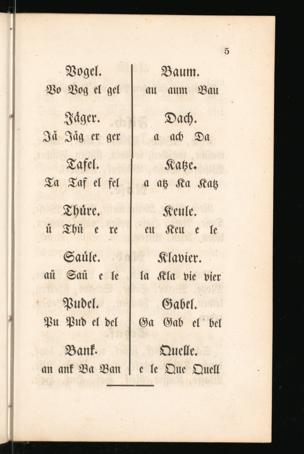 5
Vogel.
Vo Vog el gel
Jäger.
Jä Jäg er ger
Tafel.
Ta Taf el fel
Thüre.
ü Thü e re
Saüle.
aü Saü e le
Pudel.
Pu Pud el del
Bank.
an ank Ba Ban
Baum.
au aum Bau
Dach.
a ach Da
Katze.
a atz Ka Katz
Keule.
eu Keu e le
Klavier.
la Kla vie vier
Gabel.
Ga Gab el bel
Quelle.
e le Que Quell